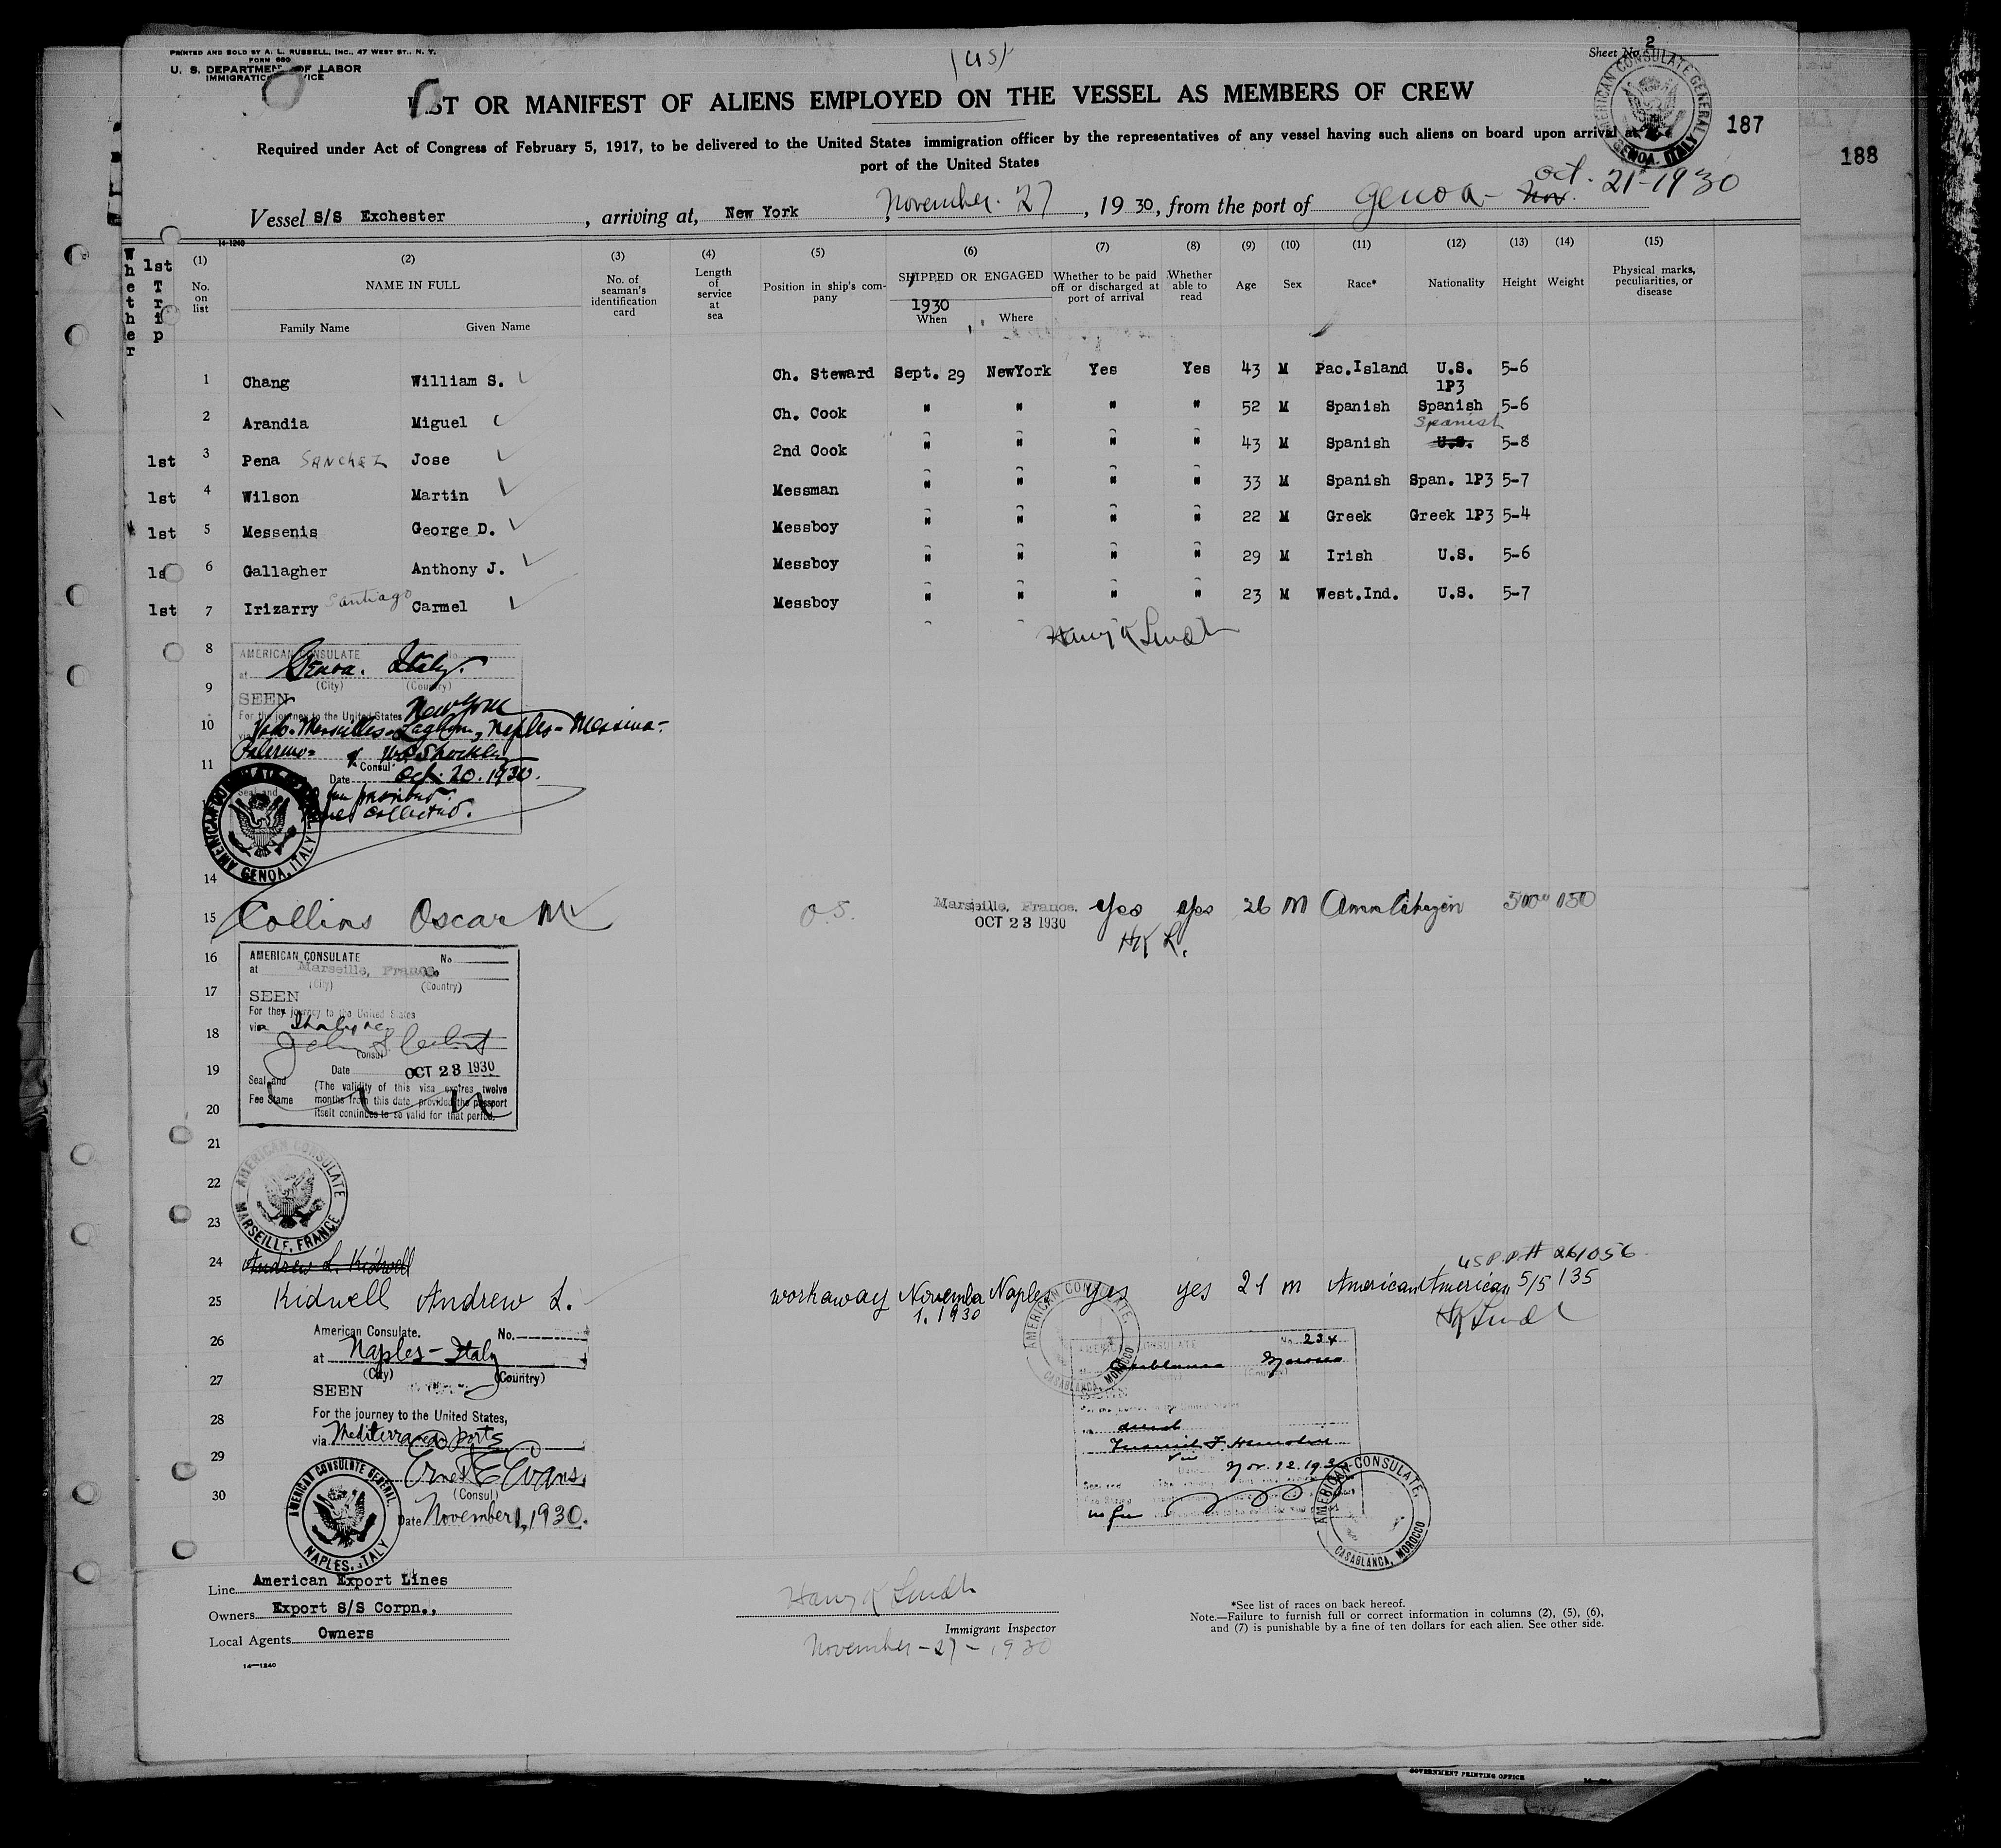 PRINTED AND SOLD BY A. L. RUSSELL, INC., 47 WEST ST., N. Y.
FORM 680
U. S. DEPARTMENT OF LABOR
IMMIGRATION SERVICE
(US)
Sheet No. 2
LIST OR MANIFEST OF ALIENS EMPLOYED ON THE VESSEL AS MEMBERS OF CREW
AMERICAN CONSULATE GENERAL GENOA, ITALY
187
188
Required under Act of Congress of February 5, 1917, to be delivered to the United States immigration officer by the representatives of any vessel having such aliens on board upon arrival at
port of the United States
Vessel S/S Exchester, arriving at, New York November. 27, 1930, from the port of Genoa - Nov. Oct. 21-1930
14-1240
Whether 1st Trip
(1) (2) (3) (4) (5) (6) (7) (8) (9) (10) (11) (12) (13) (14) (15)
No. on list
NAME IN FULL
Family Name Given Name
No. of seaman's identification card
Length of service at sea
Position in ship's company
SHIPPED OR ENGAGED
1930
When Where
Whether to be paid off or discharged at port of arrival
Whether able to read
Age Sex Race* Nationality Height Weight
Physical marks, peculiarities, or disease
1 Chang William S. Ch. Steward Sept. 29 NewYork Yes Yes 43 M Pac.Island U.S. 1P3 5-6
2 Arandia Miguel Ch. Cook " " " " 52 M Spanish Spanish 5-6
1st 3 Pena SANCHEZ Jose 2nd Cook " " " " 43 M Spanish U.S. Spanish 5-8
1st 4 Wilson Martin Messman " " " " 33 M Spanish Span. 1P3 5-7
1st 5 Messenis George D. Messboy " " " " 22 M Greek Greek 1P3 5-4
1st 6 Gallagher Anthony J. Messboy " " " " 29 M Irish U.S. 5-6
1st 7 Irizarry Santiago Carmel Messboy " " " " 23 M West.Ind. U.S. 5-7
8
AMERICAN CONSULATE
at Genoa. Italy.
(City) (Country)
9
SEEN
For the journey to the United States New York
10
via Vado-Marseilles-Leghorn, Naples-Messina-
Palermo-
11
Consul
Date Oct. 20. 1930.
Seal and
collected.
AMERICAN CONSULATE GENERAL GENOA, ITALY
14
15 Collins Oscar M O.S. Marseille, France. OCT 23 1930 Yes Yes 26 M Amn Citizen
HKL.
16
AMERICAN CONSULATE No
at Marseille, France
(City) (Country)
17
SEEN
For the journey to the United States
18
via
Consul
19
Date OCT 23 1930
Seal and
Fee Stamp
(The validity of this visa expires twelve
months from this date, provided the passport
itself continues to be valid for that period.
20
21
22
23
AMERICAN CONSULATE MARSEILLE, FRANCE
24 Andrew L. Kidwell
USP.P# 261056
25 Kidwell Andrew L. workaway November 1, 1930 Naples yes yes 21 M American American 5/5 135
26
American Consulate. No.
at Naples - Italy
(City) (Country)
27
SEEN
28
For the journey to the United States,
via Mediterranean ports
29
Ernest E Evans
(Consul)
30
Date November 1, 1930.
AMERICAN CONSULATE GENERAL. NAPLES, ITALY
AMERICAN CONSULATE. CASABLANCA, MOROCCO
AMERICAN CONSULATE No 234
Casablanca Morocco
direct
Nov. 12. 1930
no fee
AMERICAN CONSULATE. CASABLANCA, MOROCCO
Line American Export Lines
Owners Export S/S Corpn.,
Local Agents Owners
14-1240
Harry K Lindh
Immigrant Inspector
November - 27 - 1930
*See list of races on back hereof.
Note.—Failure to furnish full or correct information in columns (2), (5), (6),
and (7) is punishable by a fine of ten dollars for each alien. See other side.
GOVERNMENT PRINTING OFFICE